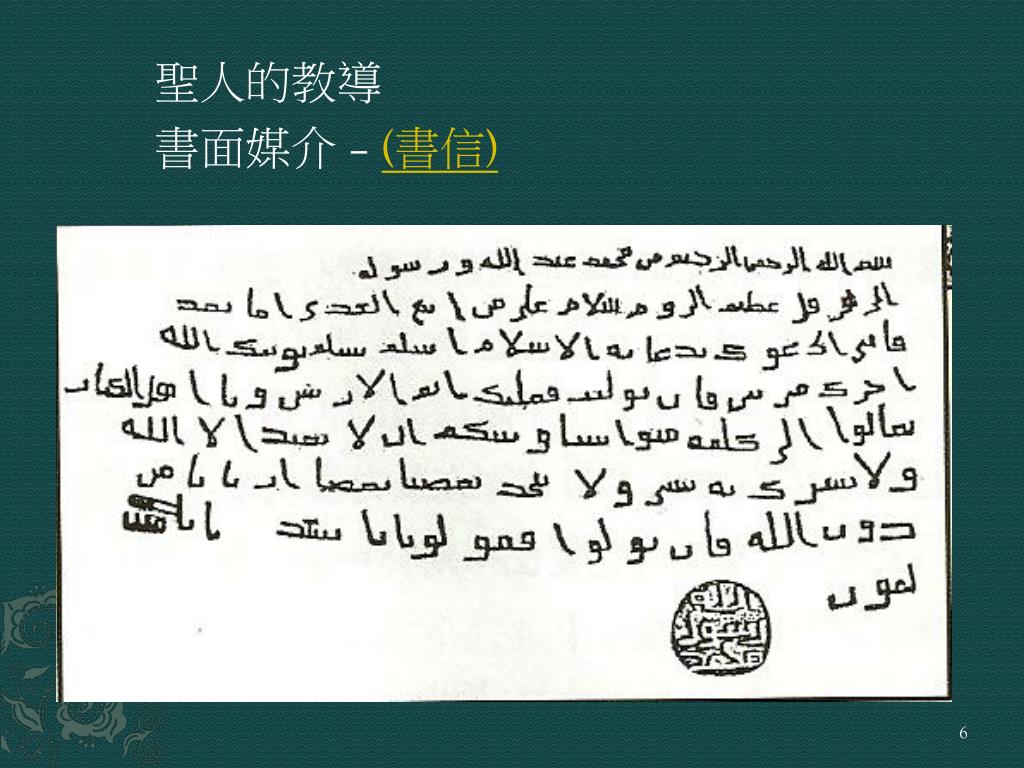 聖人的教導
書面媒介 – (書信)
بسم الله الرحمن الرحيم من محمد عبد الله ورسوله
الى هرقل عظيم الروم سلام على من اتبع الهدى اما بعد
فانى ادعوك بدعاية الاسلام اسلم تسلم يوتك الله
اجرك مرتين فان توليت فعليك اثم الاريسين ويا اهل الكتاب
تعالوا الى كلمة سوا بيننا وبينكم الا نعبد الا الله
ولا نشرك به شيا ولا يتخذ بعضنا بعضا اربابا من
دون الله فان تولوا فقولوا اشهدوا بانا
مسلمون
الله
رسول
محمد
6